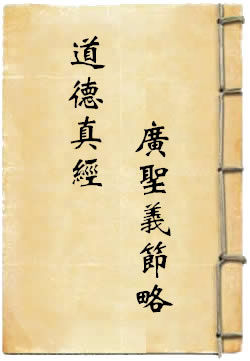 道德真經
廣聖義節略